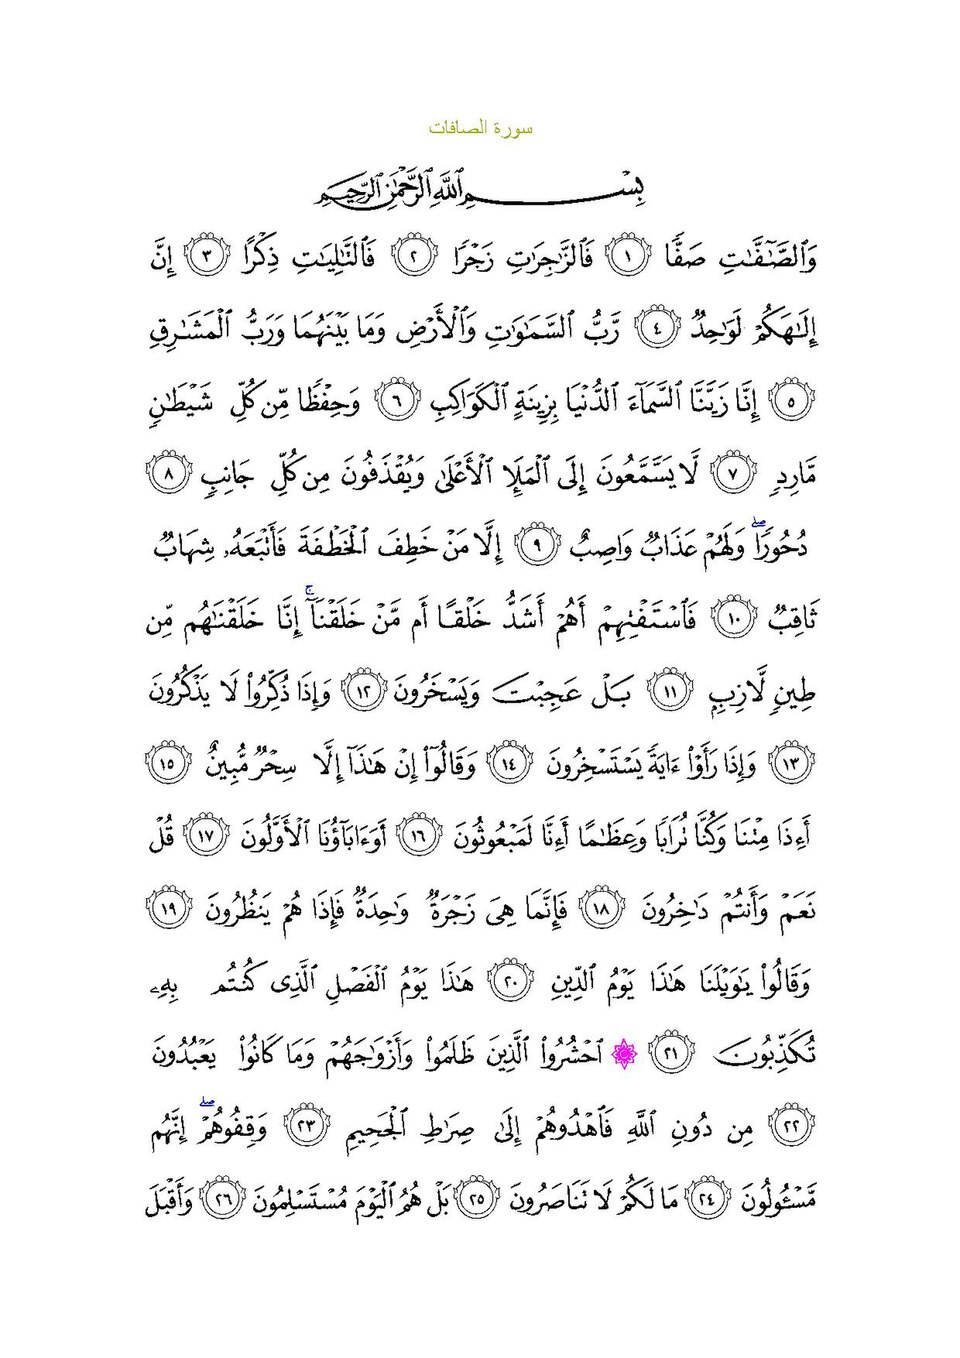 سورة الصافات
بِسْمِ ٱللَّهِ ٱلرَّحْمَٰنِ ٱلرَّحِيمِ
وَٱلصَّٰٓفَّٰتِ صَفًّا ١ فَٱلزَّٰجِرَٰتِ زَجْرًا ٢ فَٱلتَّٰلِيَٰتِ ذِكْرًا ٣ إِنَّ
إِلَٰهَكُمْ لَوَٰحِدٌ ٤ رَّبُّ ٱلسَّمَٰوَٰتِ وَٱلْأَرْضِ وَمَا بَيْنَهُمَا وَرَبُّ ٱلْمَشَٰرِقِ
٥ إِنَّا زَيَّنَّا ٱلسَّمَآءَ ٱلدُّنْيَا بِزِينَةٍ ٱلْكَوَاكِبِ ٦ وَحِفْظًا مِّن كُلِّ شَيْطَٰنٍ
مَّارِدٍ ٧ لَّا يَسَّمَّعُونَ إِلَى ٱلْمَلَإِ ٱلْأَعْلَىٰ وَيُقْذَفُونَ مِن كُلِّ جَانِبٍ ٨
دُحُورًا ۖ وَلَهُمْ عَذَابٌ وَاصِبٌ ٩ إِلَّا مَنْ خَطِفَ ٱلْخَطْفَةَ فَأَتْبَعَهُۥ شِهَابٌ
ثَاقِبٌ ١٠ فَٱسْتَفْتِهِمْ أَهُمْ أَشَدُّ خَلْقًا أَم مَّنْ خَلَقْنَآ ۚ إِنَّا خَلَقْنَٰهُم مِّن
طِينٍ لَّازِبٍ ١١ بَلْ عَجِبْتَ وَيَسْخَرُونَ ١٢ وَإِذَا ذُكِّرُوا۟ لَا يَذْكُرُونَ
١٣ وَإِذَا رَأَوْا۟ ءَايَةً يَسْتَسْخِرُونَ ١٤ وَقَالُوٓا۟ إِنْ هَٰذَآ إِلَّا سِحْرٌ مُّبِينٌ ١٥
أَءِذَا مِتْنَا وَكُنَّا تُرَابًا وَعِظَٰمًا أَءِنَّا لَمَبْعُوثُونَ ١٦ أَوَءَابَآؤُنَا ٱلْأَوَّلُونَ ١٧ قُلْ
نَعَمْ وَأَنتُمْ دَٰخِرُونَ ١٨ فَإِنَّمَا هِىَ زَجْرَةٌ وَٰحِدَةٌ فَإِذَا هُمْ يَنظُرُونَ ١٩
وَقَالُوا۟ يَٰوَيْلَنَا هَٰذَا يَوْمُ ٱلدِّينِ ٢٠ هَٰذَا يَوْمُ ٱلْفَصْلِ ٱلَّذِى كُنتُم بِهِۦ
تُكَذِّبُونَ ٢١ ۞ ٱحْشُرُوا۟ ٱلَّذِينَ ظَلَمُوا۟ وَأَزْوَٰجَهُمْ وَمَا كَانُوا۟ يَعْبُدُونَ
٢٢ مِن دُونِ ٱللَّهِ فَٱهْدُوهُمْ إِلَىٰ صِرَٰطِ ٱلْجَحِيمِ ٢٣ وَقِفُوهُمْ ۖ إِنَّهُم
مَّسْـُٔولُونَ ٢٤ مَا لَكُمْ لَا تَنَاصَرُونَ ٢٥ بَلْ هُمُ ٱلْيَوْمَ مُسْتَسْلِمُونَ ٢٦ وَأَقْبَلَ